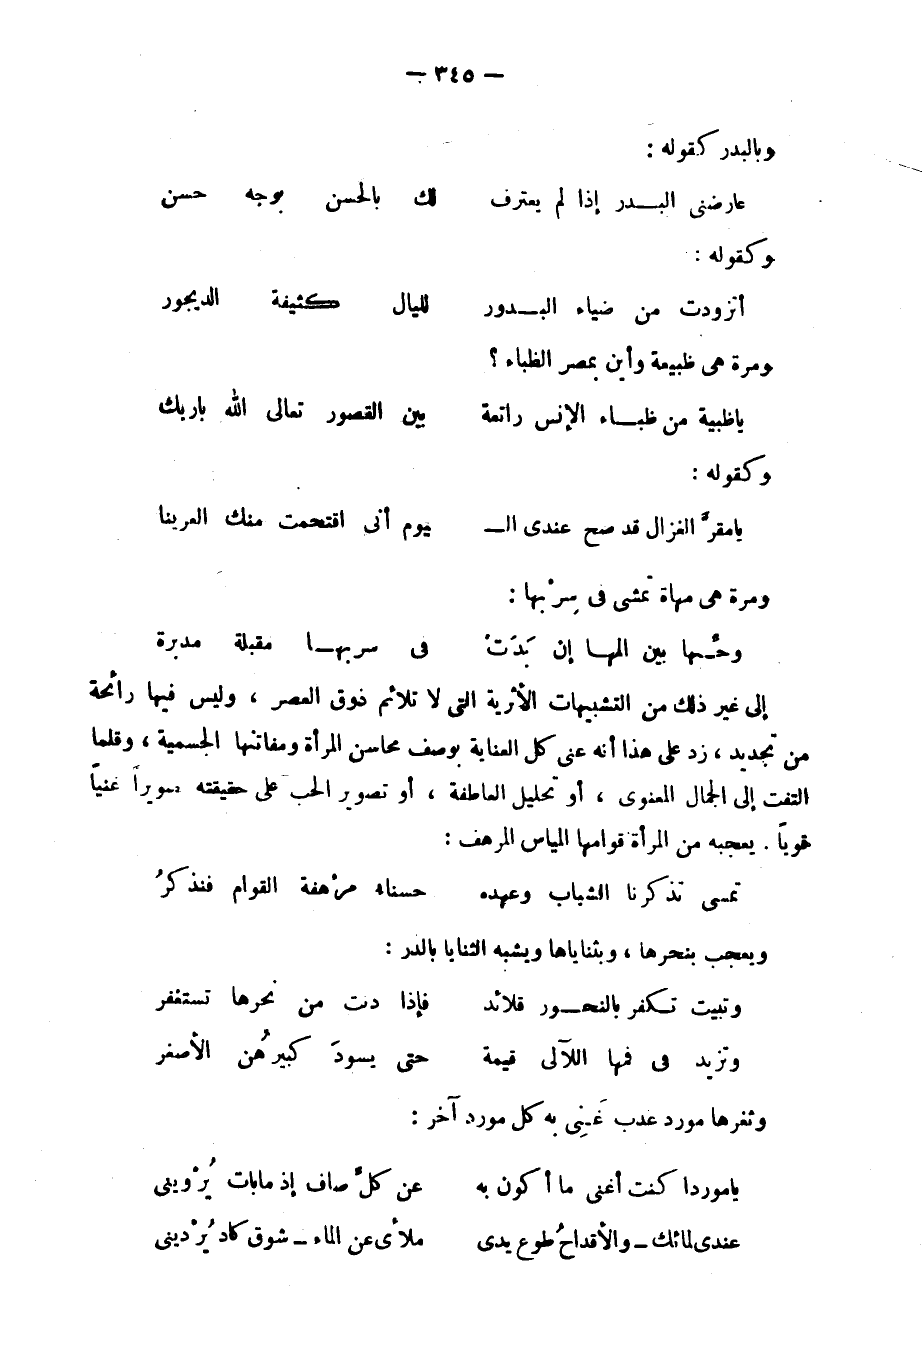 — ٣٤٥ —
وبالبدر كقوله :
عارضنى البـــدر إذا لم يعترف لك بالحسن بوجه حسن
وكقوله :
أتزودت من ضياء البـــدور لليال كثيفة الديجور
ومرة هى ظبيعة وأين بمصر الظباء ؟
ياظبية من ظبـــاء الإنس راتعة بين القصور تعالى الله باريك
وكقوله :
يامقرَّ الغزال قد صح عندى الـــ يوم أنى اقتحمت منك العرينا
ومرة هى مهاة تمشى فى سِرْبها :
بين المهـــا إن بَدَتْ فى سربهـــا مقبلة مدبرة
إلى غير ذلك من التشبيهات الأثرية التى لا تلائم ذوق العصر ، وليس فيها رائحة
من تجديد ، زد على هذا أنه عنى كل العناية بوصف محاسن المرأة ومفاتنها الجسمية ، وقلما
التفت إلى الجمال المعنوى ، أو تحليل العاطفة ، أو تصوير الحب على حقيقته تصويراً غنياً
قوياً . يعجبه من المرأة قوامها المياس المرهف :
تمسى تذكرنا الشباب وعهده حسناء مرْهفة القوام فنذكرُ
ويعجب بنحرها ، وبثناياها ويشبه الثنايا بالدر :
وتبيت تكفر بالنحـــور قلائد فإذا دنت من نحرها تستغفر
وتزيد فى فمها اللآلى قيمة حتى يسودَ كبيرهُن الأصغر
وثغرها مورد عذب غَنِى به كل مورد آخر :
ياموردا كنت أغنى ما أكون به عن كلِّ صاف إذ مابات يُرْوينى
عندى لمائك ــ والأقداحُ طوع يدى ملأى عن الماء ــ شوق كاد يُرْدينى